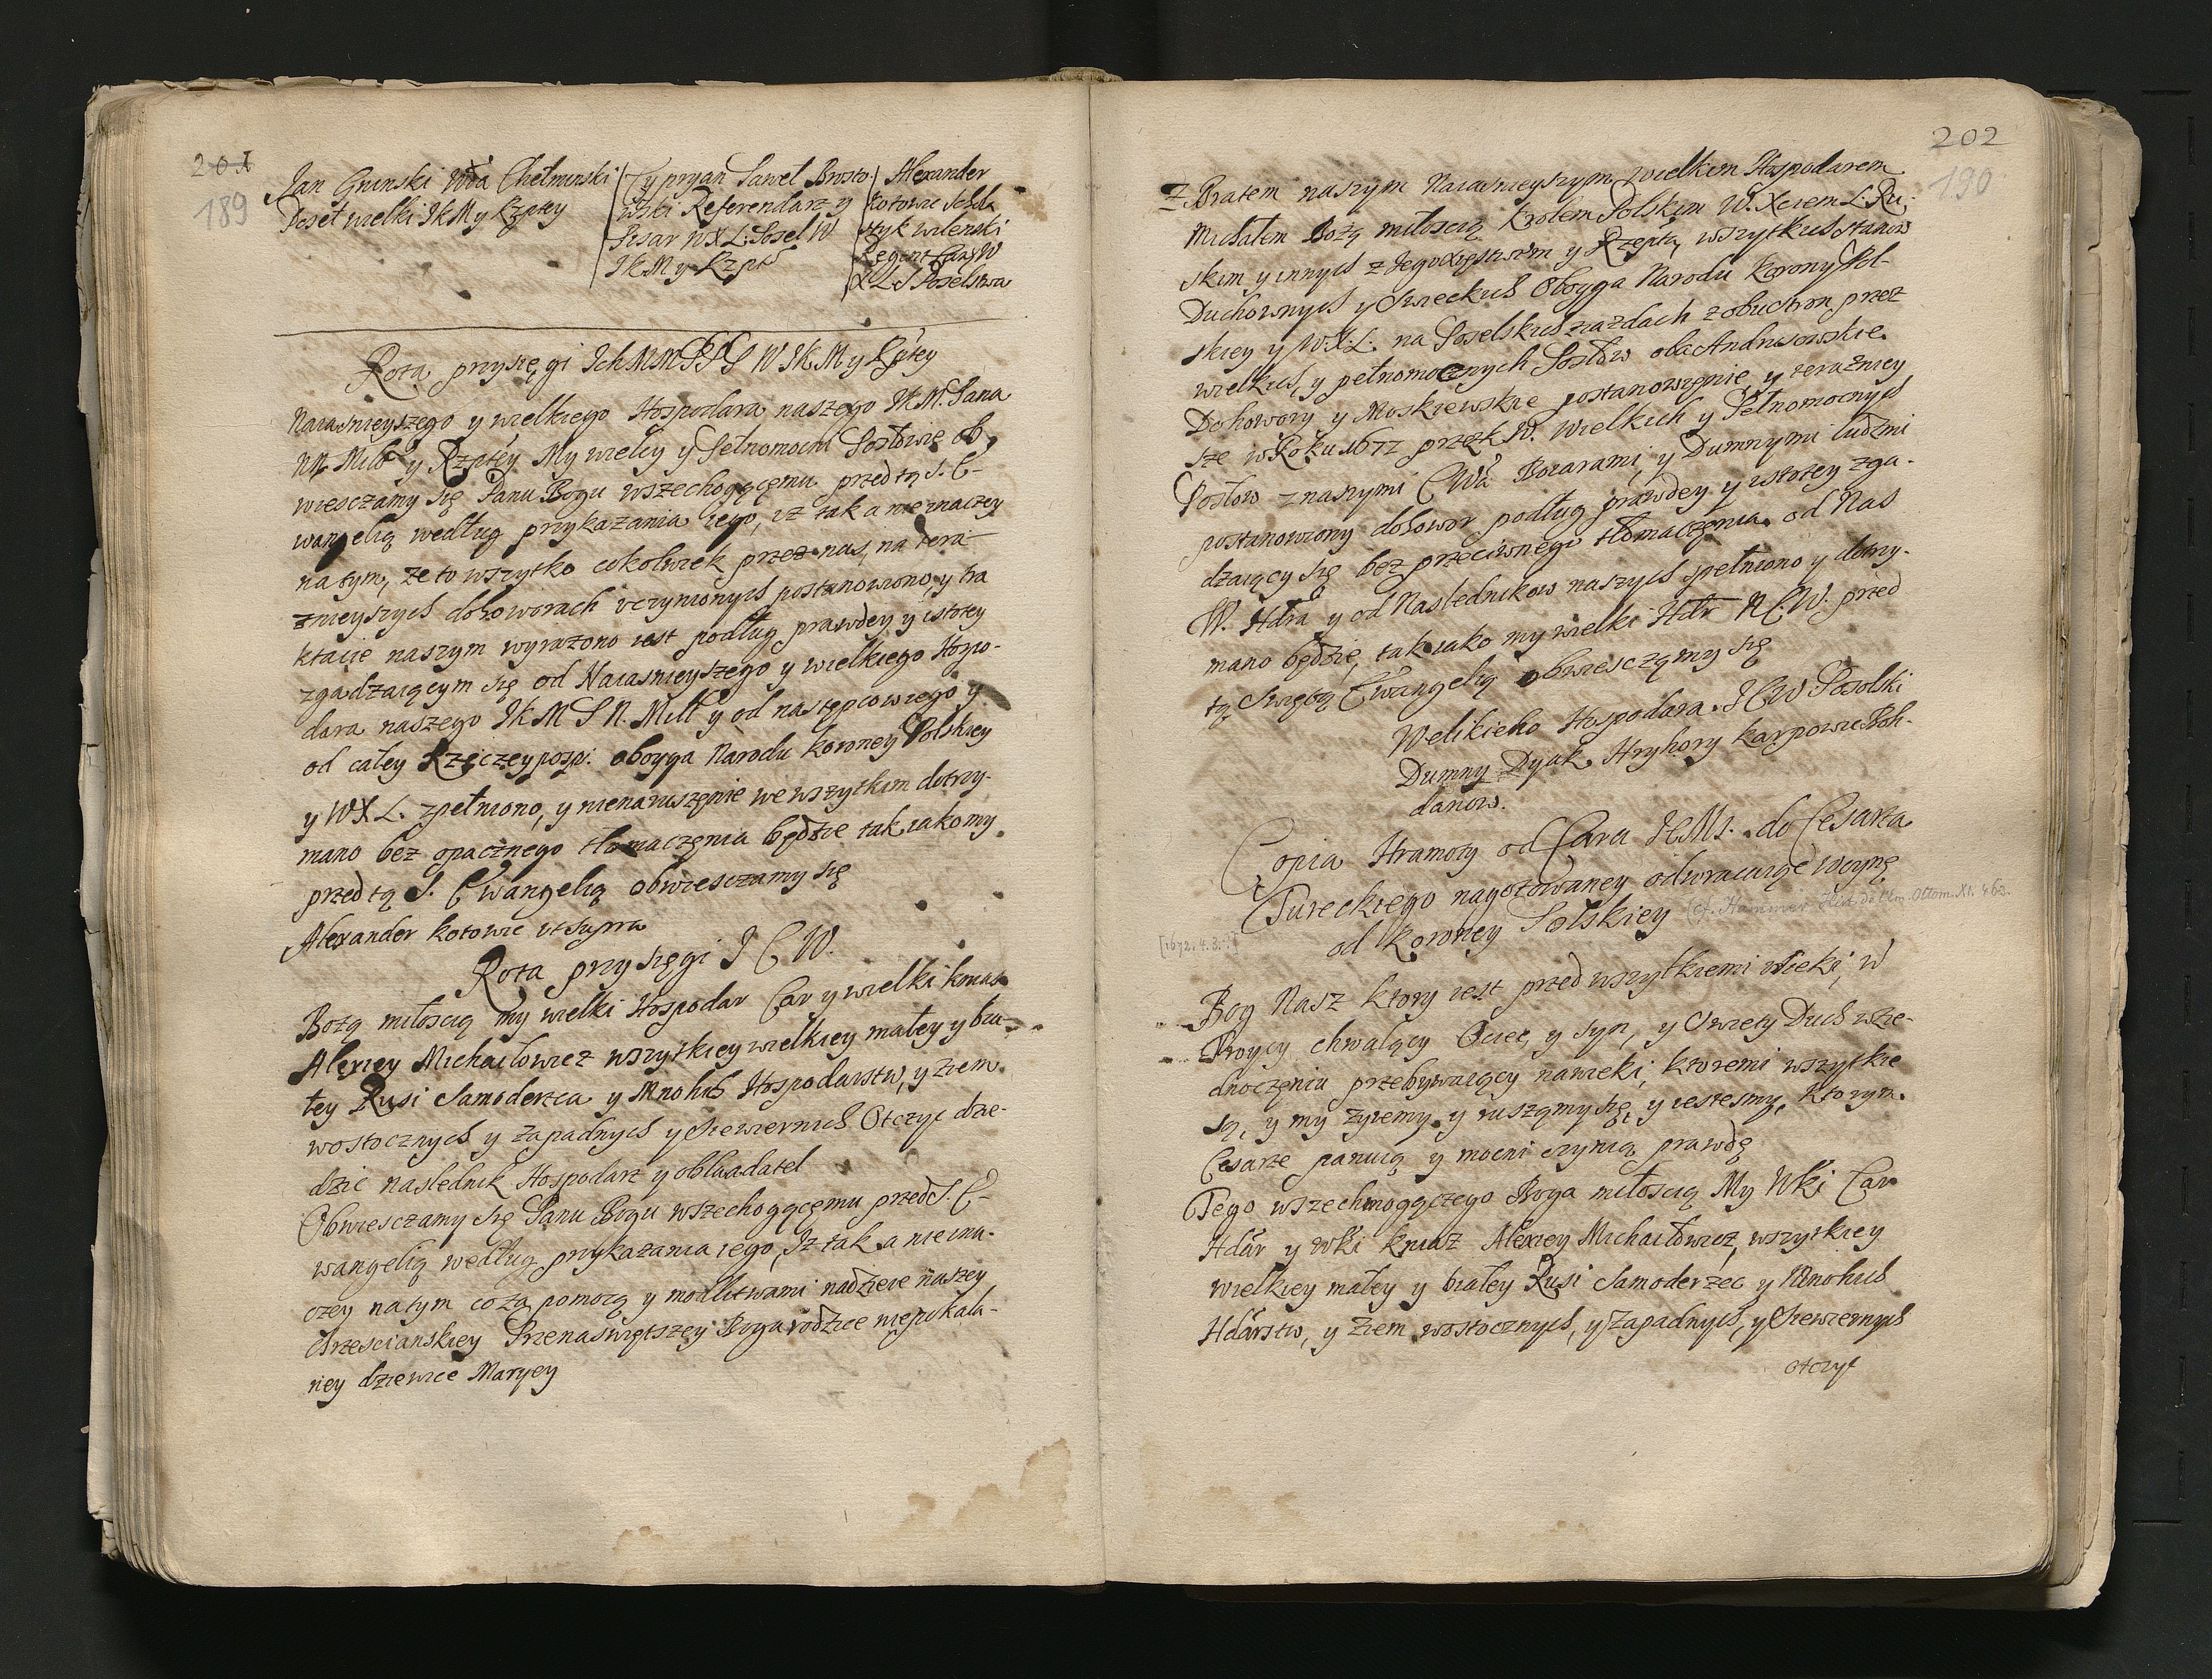 201
189
Jan Gninski Wda Chełminski
Poseł wielki JKM y Rzptey
Cypryan Paweł Brosto-
wski Referendarz y
Pisar WXL: Poseł W
JKM y Rzpt
Alexander
Kotowic Scholastyk wilenski
Regent Can W
XL S Poselstwa
Rota przysięgi Ich MM PPP W JKM y Rptey
Naiasnieyszego y wielkiego Hospodara naszego JKM. Pana
NN Miło y Rzptey My wielcy y Pełnomocni Posłowie ob-
wiesczamy się Panu Bogu wszechogącęmu przed tą S. E-
wangelią według przykazania iego, iz tak a nie inaczey
na tym, ze to wszytko cokolwiek przez nas, na tera-
znieyszych dohoworach uczynionych postanowiono, y tra
ktacie naszym wyrazono iest podług prawdey y istotey
zgadzaiącym się od Naiasnieyszego y wielkiego Hospo-
dara naszego JKM P N. Mill y od następcow iego y
od całey Rzeczeyposp: oboyga Narodu koroney Polskiey
y WXL. zpełniono, y nienaruszęnie we wszytkim dotrzy-
mano bez opacznego tłomaczęnia będzie tak iako my
przed tą S. Ewangelią obwiesczamy się
Alexander Kotowic ut supra
Rota przysięgi J C W.
Bozą miłoscią my wielki Hospodar Car y wielki kniaz
Alexiey Michaiłowicz wszytkiey wielkiey małey y bia-
łey Rusi Samoderzca y Mnohich Hospodarstw, y ziem
wostocznych y zapadnych y Siewiernich Otczyc dzie-
dzic naslednik Hospodarz y obladatel
Obwiesczamy się Panu Bogu wszechogącęmu przed S. E-
wangelią według przykazania iego, Iz tak a nie ina-
czey na tym co za pomocą y modlitwami nadzieie naszey
chrzescianskiey Przenaswiętszey Bogarodzice niepokala-
ney dziewice Maryey
202
190
z Bratem naszym Naiasnieyszym wielkim Hospodarem
Michałem Bozą miłoscią krolem Polskim W. Xciem L: Ru-
skim y innych z Jego Xięstwem y Rzeptą wszytkich stanow
Duchownych y Swieckich Oboyga Narodu Korony Pol-
skiey y WX:L: na Poselskich ziazdach z obu stron przez
wielkich, y pełnomocznych Posłow oba Andrusowskie
Dohowory y Moskiewskie postanowięnie y terazniey
sze w Roku 1672 przez W. Wielkich y Pełnomocnych
Posłow z naszymi CWa Boiarami y Dumnymi ludzmi
postanowiony dohowor podług prawdey y istotey zga-
dzaiący się bez przeciwnego tłomaczęnia od Nas
W. Hdra y od Naslednikow naszych spełniono y dotrzy-
mano będzie, tak iako my wielki Hdr N C W. przed
tą Swiętą Ewangelią obwiesczamy się
Welikieho Hospodara J C W Posolski
Dumny Dyak Hryhory Karpowic Boh-
danow.
Copia Hramoty od Cara JCMs. do Cesarza
Tureckiego nagotowaney odwracaiąc woynę
od Koroney Polskiey
(cf. Hammer Hist. de l'Em. Ottom. XI. 463.
[1672. 4. 3. ?]
Bog Nasz ktory iest przed wszytkiemi wieki, w
Troycy chwalący Ociec, y syn, y Swiety Duch w zie-
dnoczęniu przebywaiący na wieki, ktoremi wszytkie
są, y my zyiemy y rusząmy się, y iestesmy, ktorym
Cesarze panuią y mocni czynią prawdę
Tego wszechmogączego Boga miłoscią My Wki Car
Hdar y wki kniaz Alexiey Michaiłowicz, wszytkiey
wielkiey małey y białey Rusi Samoderzec y Mnohich
Hdarstw, y ziem wostocznych, y Zapadnych, y Siewiernych
otczyc